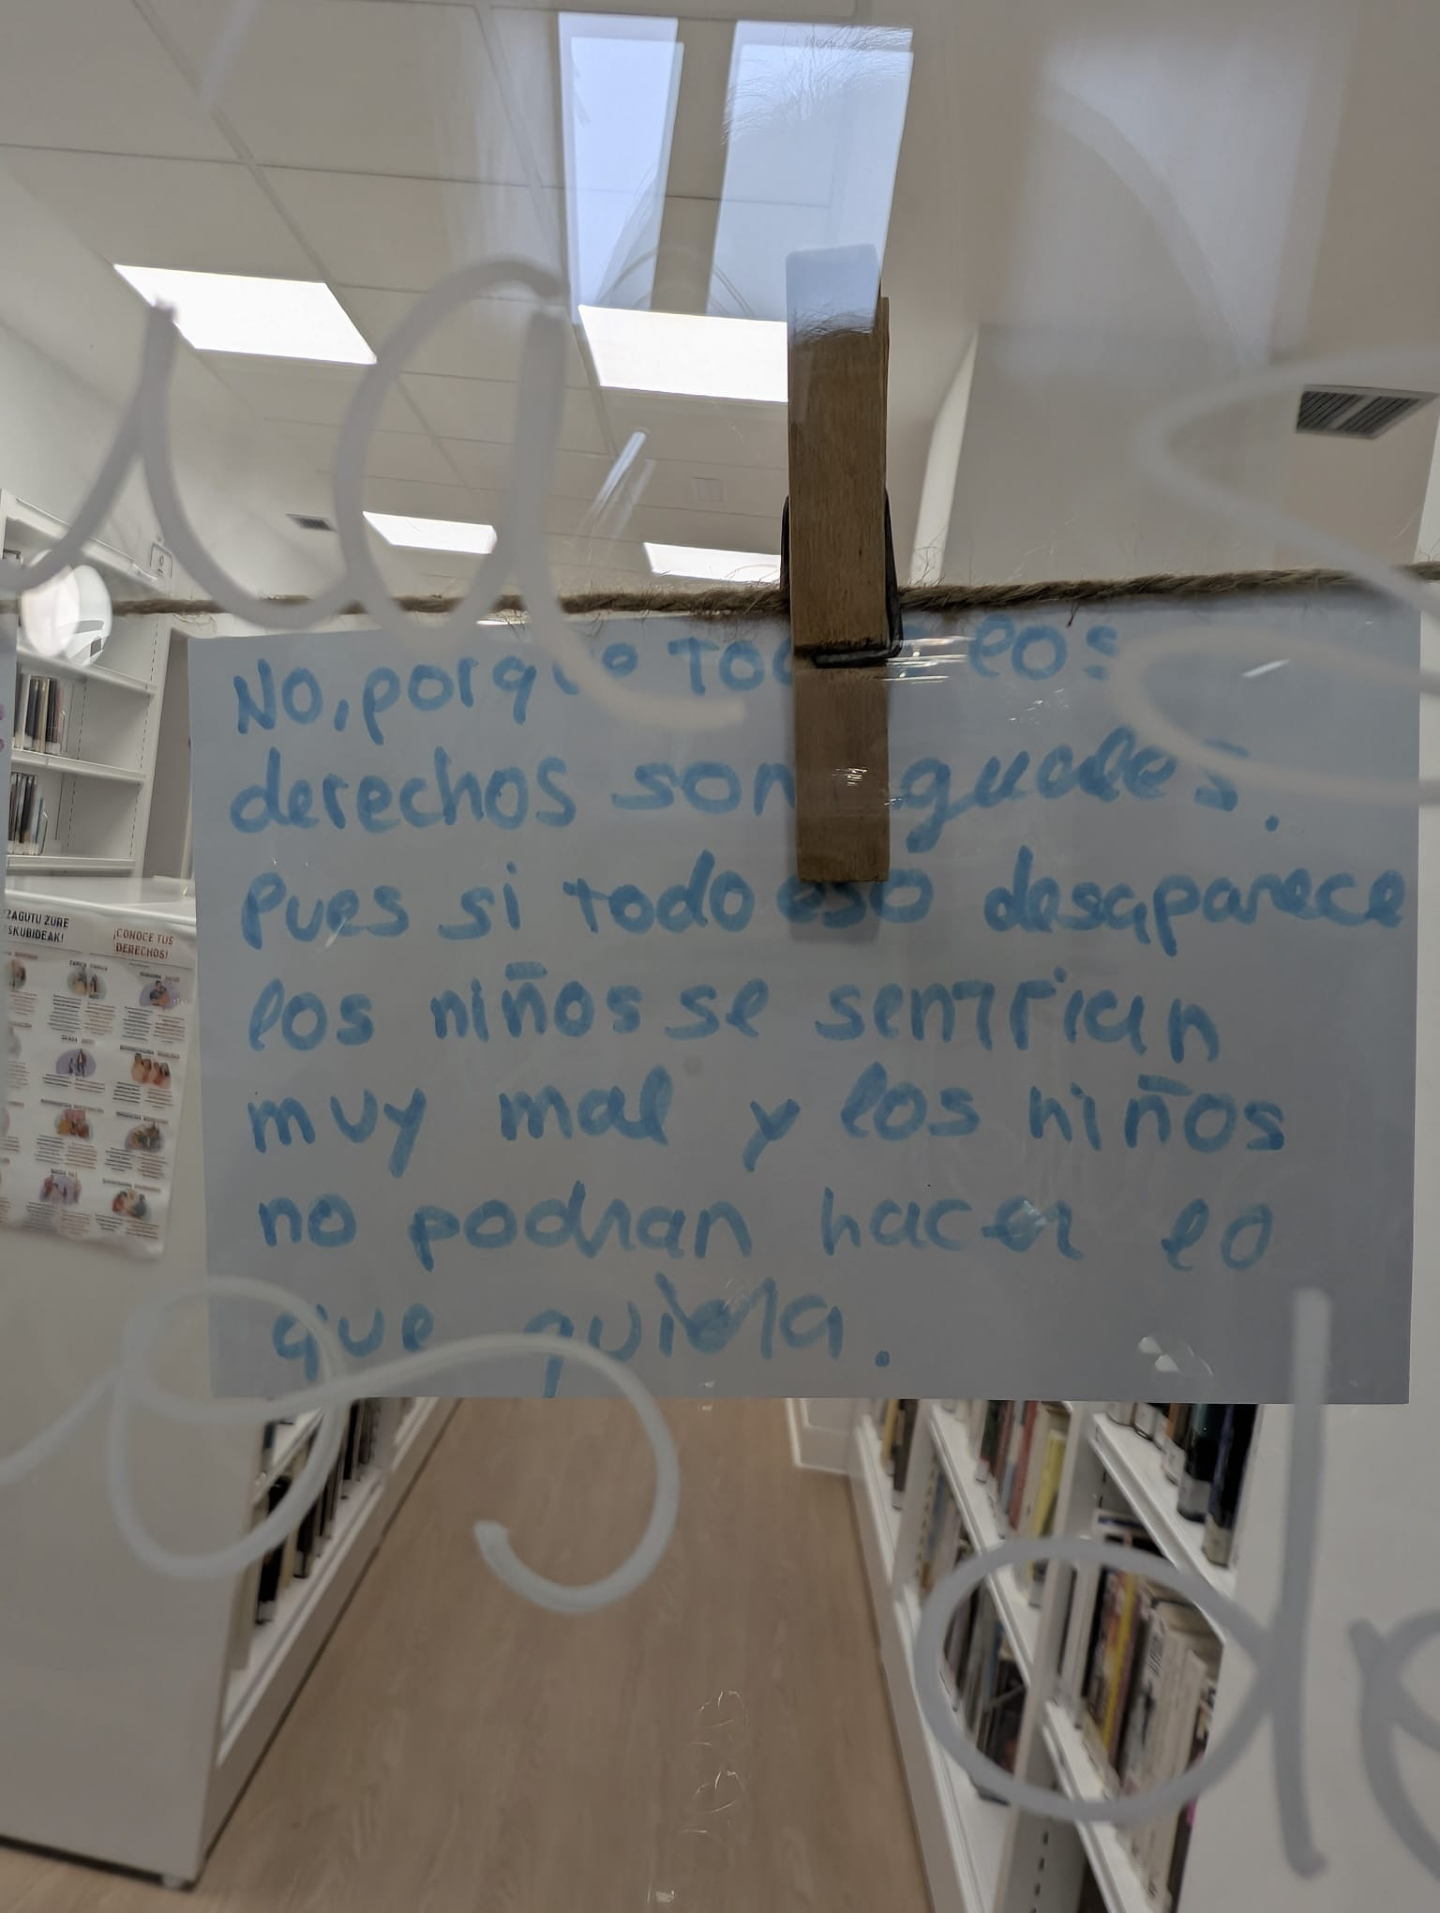 No, porque todos los
derechos son iguales.
Pues si todo eso desaparece
los niños se sentirian
muy mal y los niños
no podran hacer lo
que quiera.
ZAGUTU ZURE
SKUBIDEAK!
¡CONOCE TUS
DERECHOS!
de